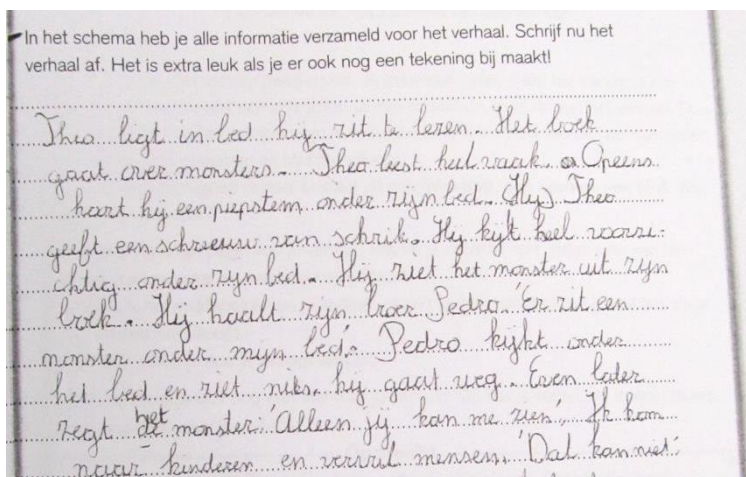 In het schema heb je alle informatie verzameld voor het verhaal. Schrijf nu het
verhaal af. Het is extra leuk als je er ook nog een tekening bij maakt!
Theo ligt in bed hij zit te lezen. Het boek
gaat over monsters. Theo leest heel vaak. Opeens
hoort hij een piepstem onder zijn bed. (Hij) Theo
geeft een schreeuw van schrik. Hij kijkt heel voorzi-
chtig onder zijn bed. Hij ziet het monster uit zijn
boek. Hij haalt zijn broer Pedro. 'Er zit een
monster onder mijn bed'. Pedro kijkt onder
het bed en ziet niks. hij gaat weg. Even later
zegt het monster: 'Alleen jij kan me zien'. Ik kom
naar kinderen en mensen. 'Dat kan niet'.